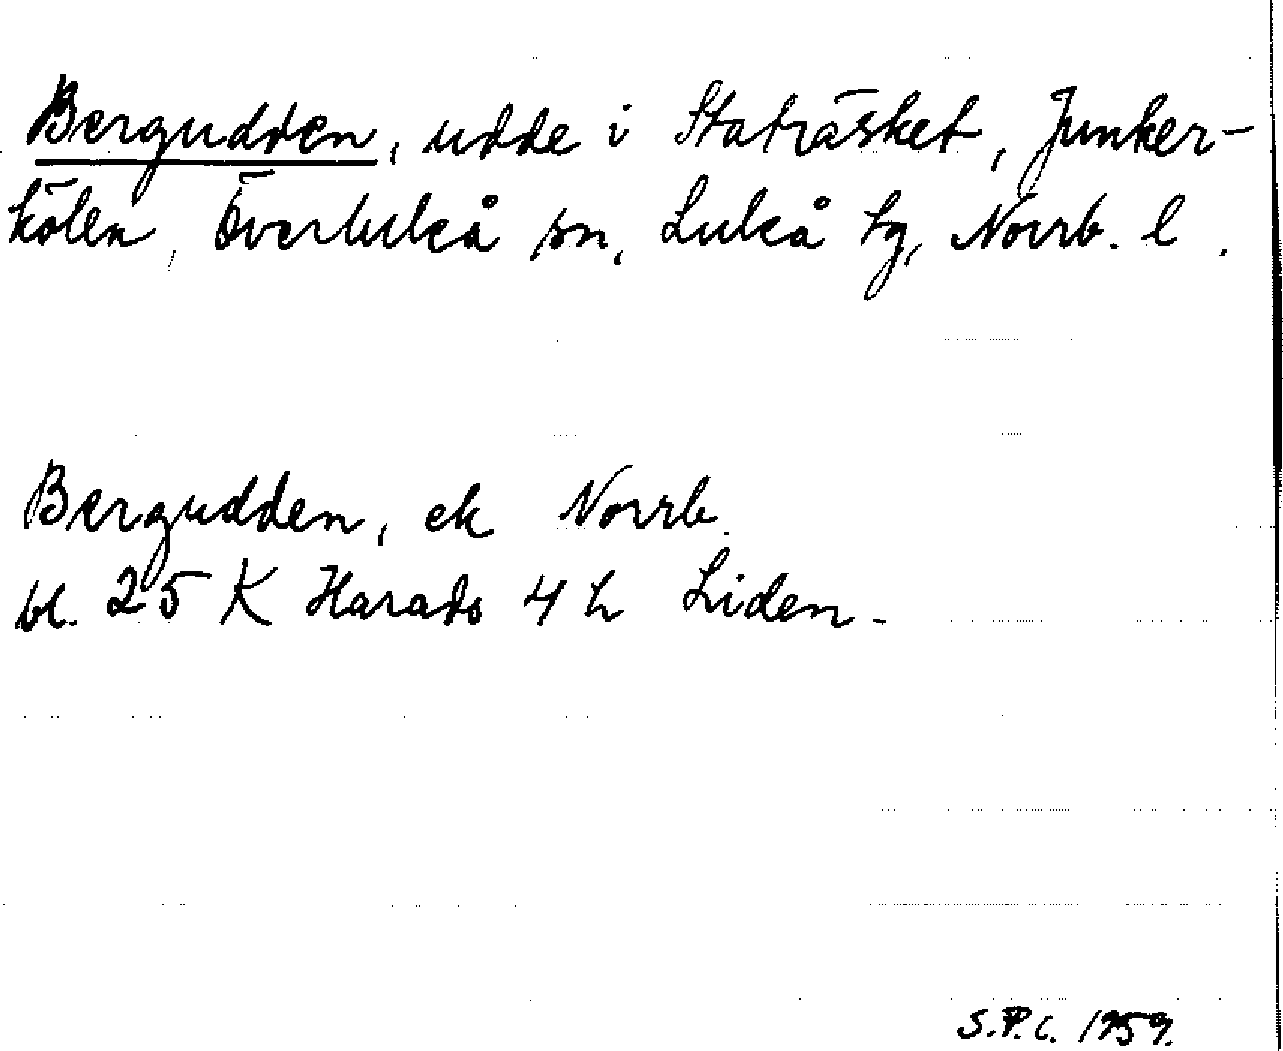 Bergudden, udde i Staträsket, Junker-
kölen, Överluleå sn, Luleå tg, Norrb. l.
Bergudden, ek Norrb.
bl. 25 K Harads 4 h Liden.
S.P.C. 1959.